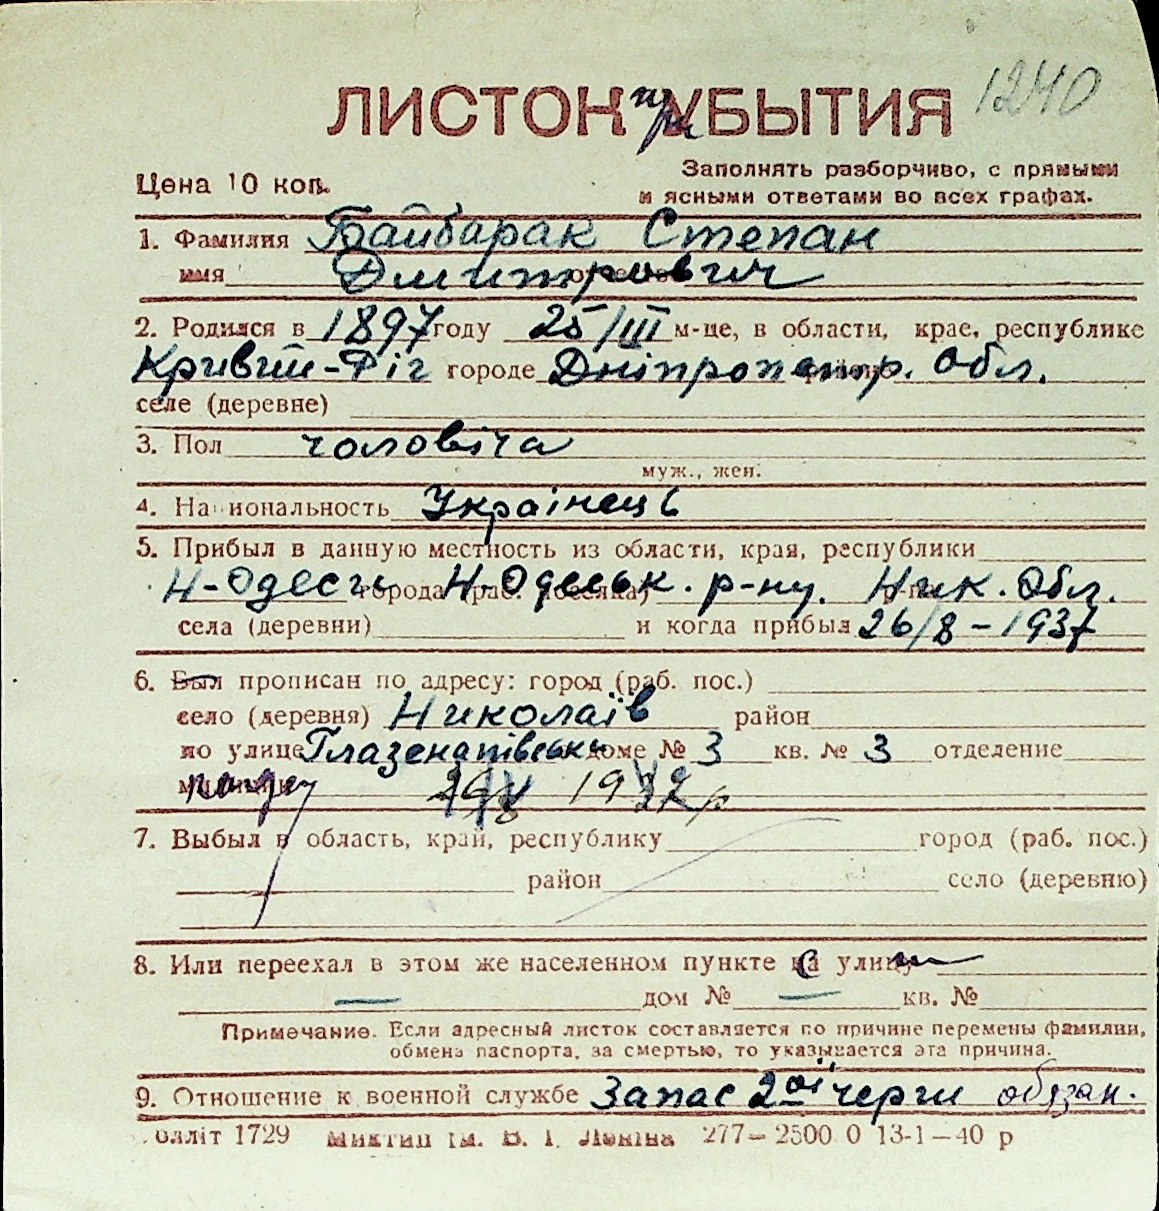 1240
ЛИСТОК при УБЫТИЯ
Цена 10 коп.
Заполнять разборчиво, с прямыми
и ясными ответами во всех графах.
1. Фамилия Байбарак Степан
имя Дмитрович
2. Родился в 1897 году 25/III м-це, в области, крае, республике
Кривий-Ріг городе Дніпропетр. Обл.
селе (деревне)
3. Пол чоловіча
муж., жен.
4. Национальность Українець
5. Прибыл в данную местность из области, края, республики
Н-Одесь города Н-Одеськ. р-ну. Ник. Обл.
села (деревни) и когда прибыл 26/8-1937
6. Был прописан по адресу: город (раб. пос.)
село (деревня) Николаїв район
по улице Глазенапівська доме № 3 кв. № 3 отделение
19
7. Выбыл в область, край, республику город (раб. пос.)
район село (деревню)
8. Или переехал в этом же населенном пункте на улицу
— дом № — кв. №
Примечание. Если адресный листок составляется по причине перемены фамилии,
обмена паспорта, за смертью, то указывается эта причина.
9. Отношение к военной службе Запас 2ої черги обязан.
олліт 1729 ім. В. І. Леніна 277—2500 0 13-1—40 р